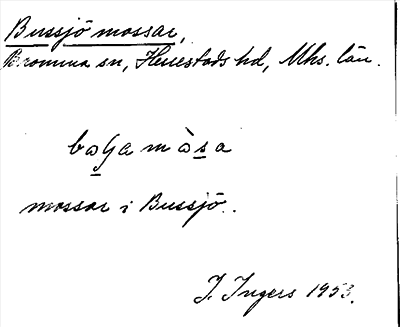 Bussjö mossar,
Bromma sn, Herrestads hd, Mhs. län.
mossar i Bussjö.
J. Ingers 1953.